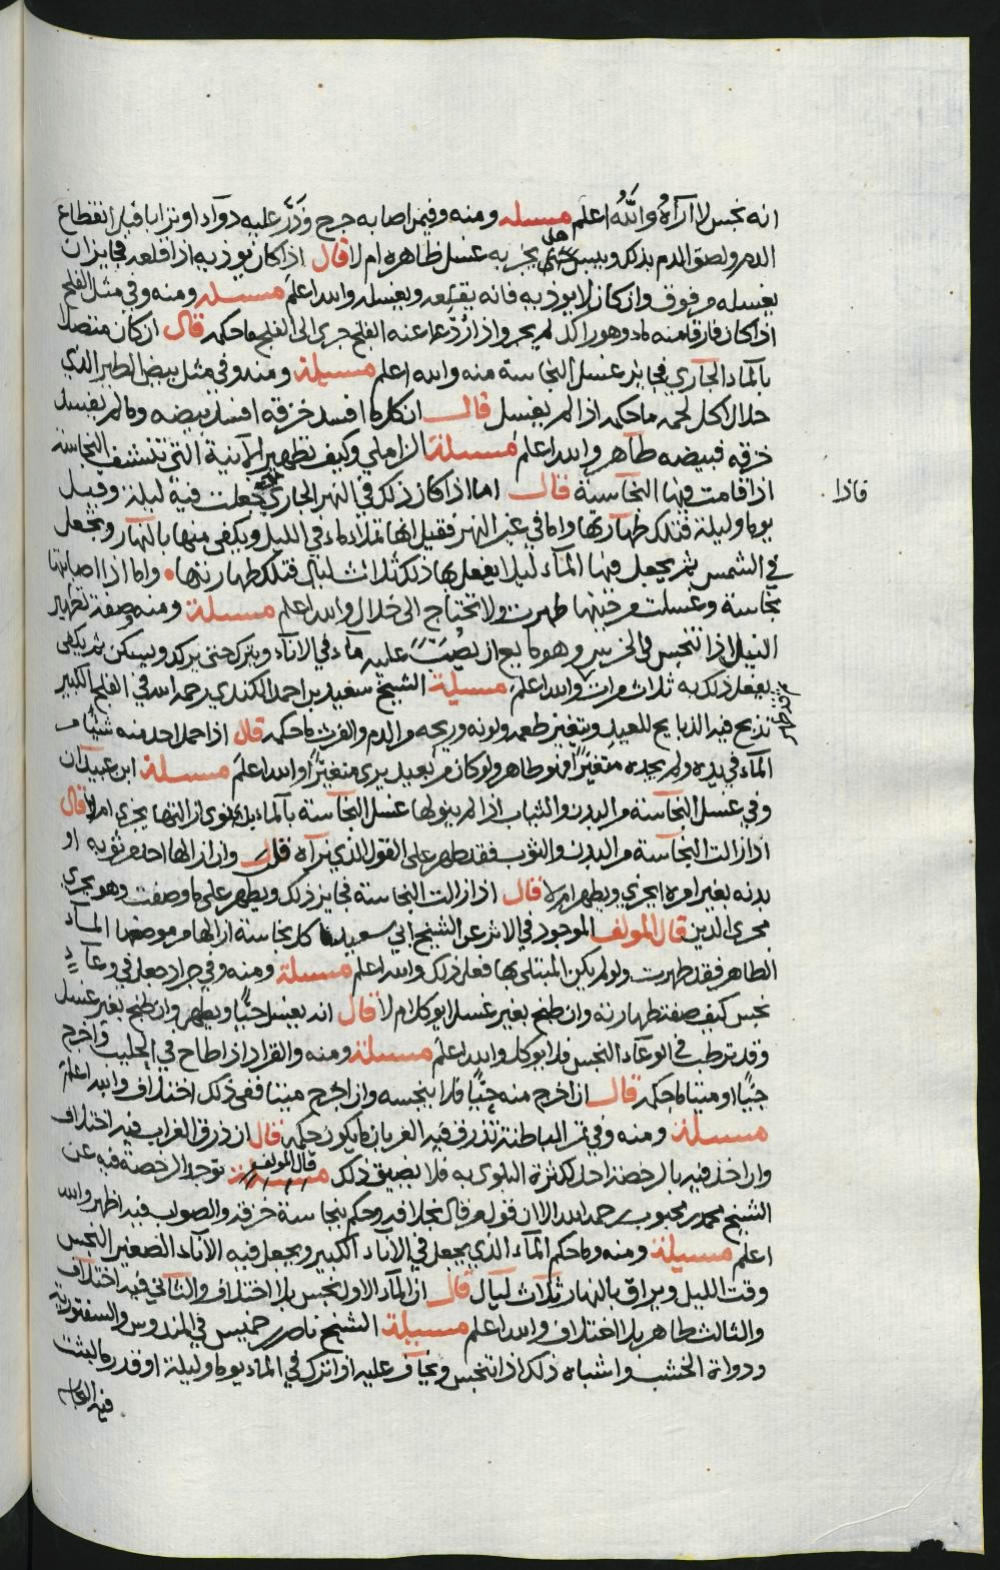 انه نجس لا اراه والله اعلم مسئلة ومنه وفيمن اصابه جرح وذر عليه دوآء او ترابا قبل انقطاع
الدم ولصق الدم بذلك ويبس هل يجزيه غسل ظاهره ام لا قال اذا كان يوذيه اذا قلعه فجايز ان
يغسله من فوق وان كان لا يوذيه فانه يقلعه ويغسله والله اعلم مسئلة ومنه وفي مثل الفلج
اذا كان فارقا منه ماء وهو راكد لم يجر واذا رد عما عنه الفلج جرى الى الفلج ما حكمه قال ان كان متصلا
بالماء الجاري فجايز غسل النجاسة منه والله اعلم مسيلة ومنه وفي مثل بيض الطير الذي
حلال اكل لحمه ما حكمه اذا لم يغسل قال ان كلما افسد خزقه افسد بيضه وما لم يفسد
خزقه فبيضه طاهر والله اعلم مسئلة الزاملي وكيف تطهير الآنية التي تنشف النجاسة
اذا قامت فيها النجاسة قال اما اذا كان ذلك في النهر الجاري جعلت فيه ليلة وقيل
يوما وليلة فتلك طهارتها واما في غير النهر فقيل انها تملأ ماء في الليل ويكفى منها بالنهار وتجعل
في الشمس ثم يجعل فيها المآء ليلا يفعل بها ذلك ثلاث ليال فتلك طهارتها واما اذا اصابتها
نجاسة وغسلت من حينها طهرت ولا تحتاج الى خلال والله اعلم مسئلة ومنه وصفة تطهير
النيل اذا تنجس في الخرس وهو مايع ان يصب عليه مآء في الانآء ويترك حتى يركد ويسكن ثم يكفى
يفعل ذلك به ثلاث مرات والله اعلم مسيلة الشيخ سعيد بن احمد الكندي رحمه الله في الفلج الكبير
تذبح فيه الذبايح للعيد ويتغير طعمه ولونه وريحه من الدم والفرث ما حكمه قال اذا حمل احد منه شيئا من
المآء في يده ولم يجده متغيرا فهو طاهر ولو كان من بعيد يرى متغيرا والله اعلم مسئلة ابن عبيدان
وفي غسل النجاسة من البدن والثياب اذا لم ينو لها غسل النجاسة بالمآء بل نوى ازالتها يجزي ام لا قال
اذا زالت النجاسة من البدن والثوب فقد طهر على القول الذي نراه قلت وان ازالها احد من ثوبه او
بدنه بغير امره ايجزي ويطهر ام لا قال اذا زالت النجاسة فجايز ذلك ويطهر على ما وصفت وهو يجري
مجرى الدين قال المولف الموجود في الاثر عن الشيخ ابي سعيد كل نجاسة ازالها من موضعها المآء
الطاهر فقد طهرت ولو لم يكن المبتلى بها فعل ذلك والله اعلم مسئلة ومنه وفي جراد جعل في وعآء
نجس كيف صفة طهارته وان طبخ بغير غسل ايوكل ام لا قال انه يغسل حيا ويطهر وان طبخ بغير غسل
وقد ترطب في الوعآء النجس فلا يوكل والله اعلم مسئلة ومنه والقراد اذا طاح في الحليب واخرج
حيا او ميتا ما حكمه قال ان اخرج منه حيا فلا ينجسه وان اخرج ميتا ففي ذلك اختلاف والله اعلم
مسئلة ومنه وفي تمر الباطنة تذرق فيه الغربان ما يكون حكمه قال ان ذرق الغراب فيه اختلاف
وان اخذ فيه بالرخصة احد لكثرة البلوى به فلا يضيق ذلك قال المولف توجد الرخصة فيه عن
الشيخ محمد بن محبوب رحمه الله الا ان قول من قال بخلافه وحكم بنجاسة خزقه والصواب فيه اظهر والله
اعلم مسيلة ومنه وما حكم المآء الذي يجعل في الانآء الكبير ويجعل فيه الانآء الصغير النجس
وقت الليل ويراق بالنهار ثلاث ليال قال ان المآء الاول نجس بلا اختلاف والثاني فيه اختلاف
والثالث طاهر بلا اختلاف والله اعلم مسيلة الشيخ ناصر بن خميس في المندوس والسفتورية
ودواة الخشب واشباه ذلك اذا تنجس ويخاف عليه اذا ترك في الماء يوما وليلة او قدر ما لبثت
فيه
فاذا